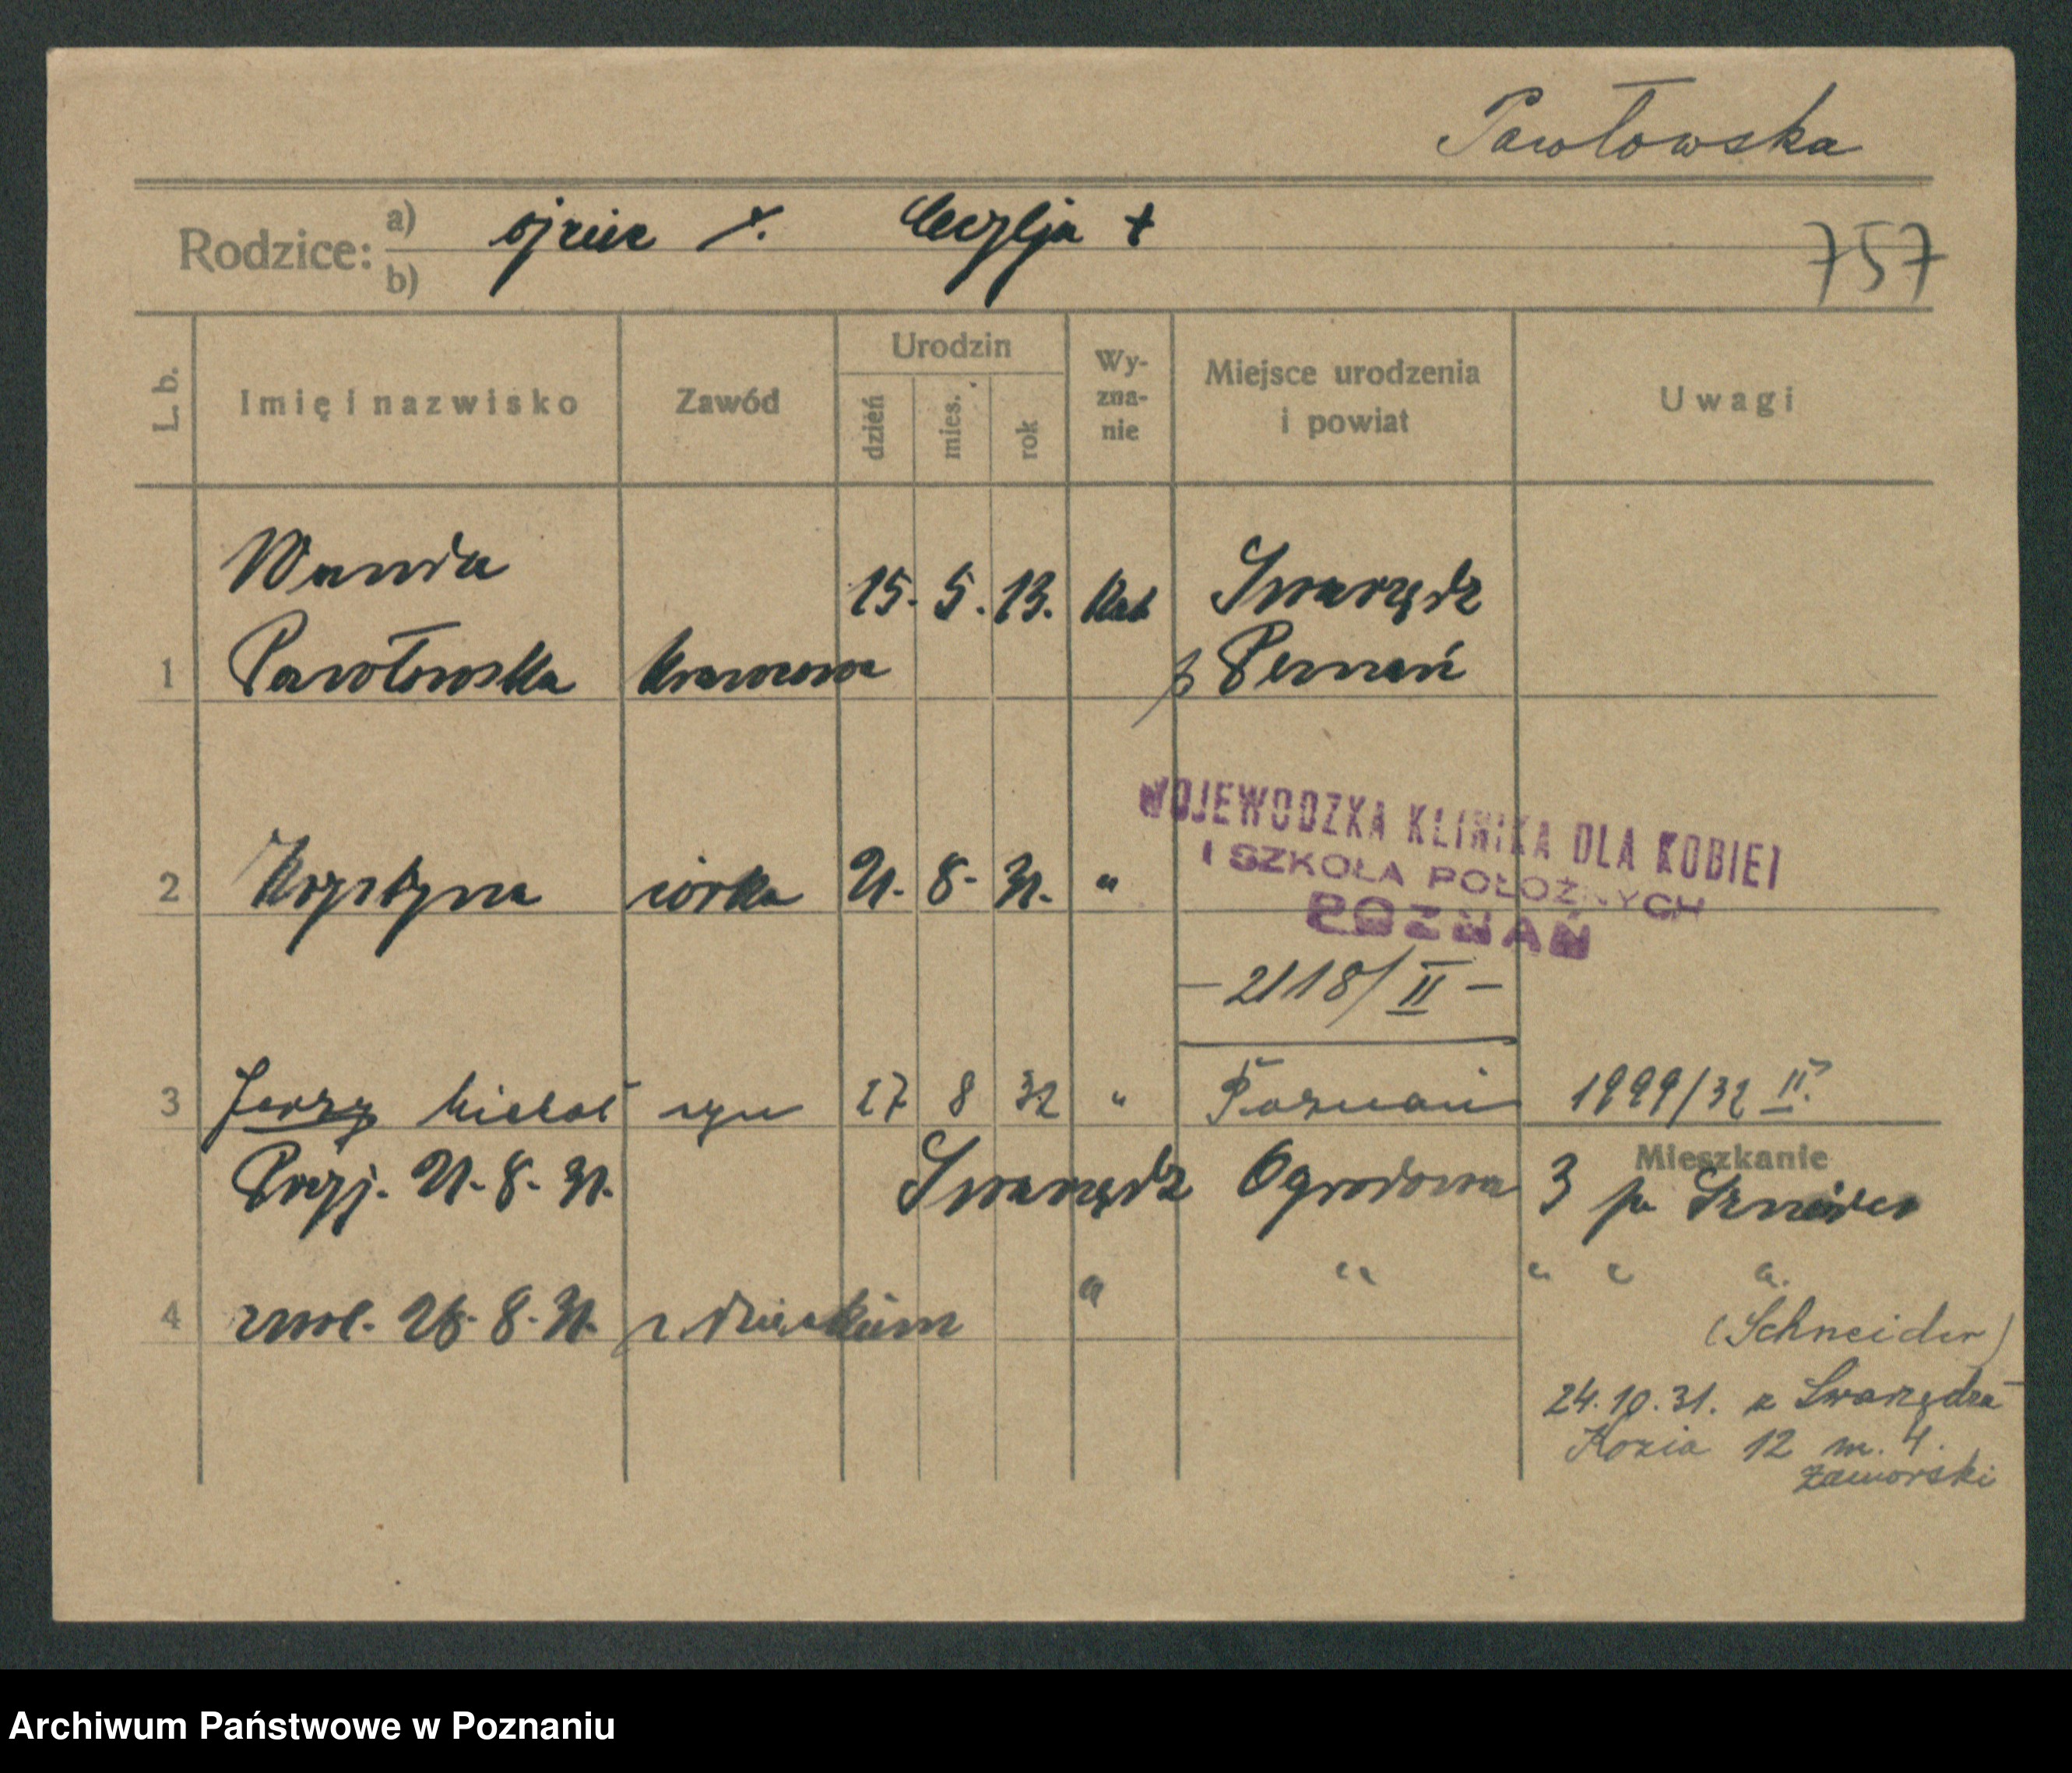 Pawłowska
Rodzice: a) ojciec /. Cecylja +
b)
757
L. b. Imię i nazwisko Zawód Urodzin dzień mies. rok Wy-zna-nie Miejsce urodzenia i powiat Uwagi
Wanda 15. 5. 13. kat Swarzędz
1 Pawłowska krawcowa p Poznań
WOJEWODZKA KLINIKA DLA KOBIET
I SZKOŁA POŁOŻNYCH
POZNAŃ
2 Krystyna córka 21. 8. 31. "
– 2118/II –
3 Jerzy Michał syn 27 8 32 " Poznań 1999/32 II.
Mieszkanie
Przyj. 21. 8. 31. Swarzędz Ogrodowa 3 pa
" " " " "
4 zwol. 28. 8. 31. z dzieckiem
(Schneider)
24.10.31. z Swarzędza
Kozia 12 m. 4.
Zaworski
Archiwum Państwowe w Poznaniu